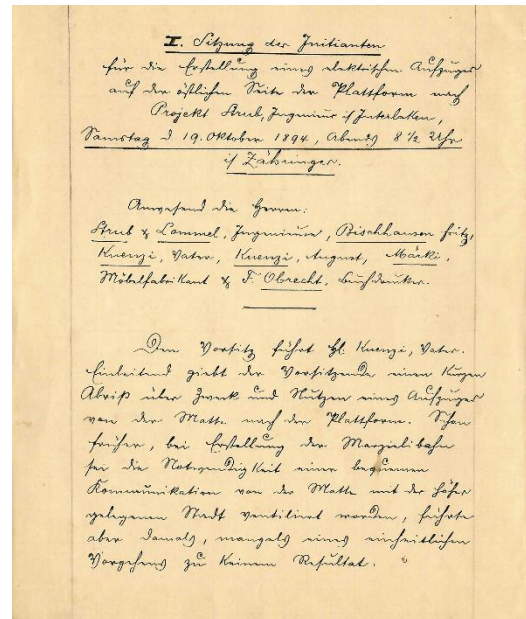 I. Sitzung der Initianten
für die Erstellung eines elektrischen Aufzuges
auf der östlichen Seite der Plattform nach
Projekt Strub, Ingenieur in Interlaken,
Samstag d 19. Oktober 1894, Abends 8 ½ Uhr
if Zähringer.
Anwesend die Herren:
Strub & Lommel, Ingenieure, Bischhausen Fritz,
Kuenzi, Vater, Kuenzi, August, Märki,
Möbelfabrikant & F. Obrecht, Buchdrucker.
Den Vorsitz führt H. Kuenzi, Vater.
Einleitend giebt der Vorsitzende einen kurzen
Abriß über Zweck und Nutzen eines Aufzuges
von der Matte nach der Plattform. Schon
früher, bei Erstellung der Marzielibahn
sei die Notwendigkeit einer bequemen
Kommunikation von der Matte mit der höher
gelegenen Stadt ventiliert worden, führte
aber damals, mangels eines einheitlichen
Vorgehens zu keinem Resultat.